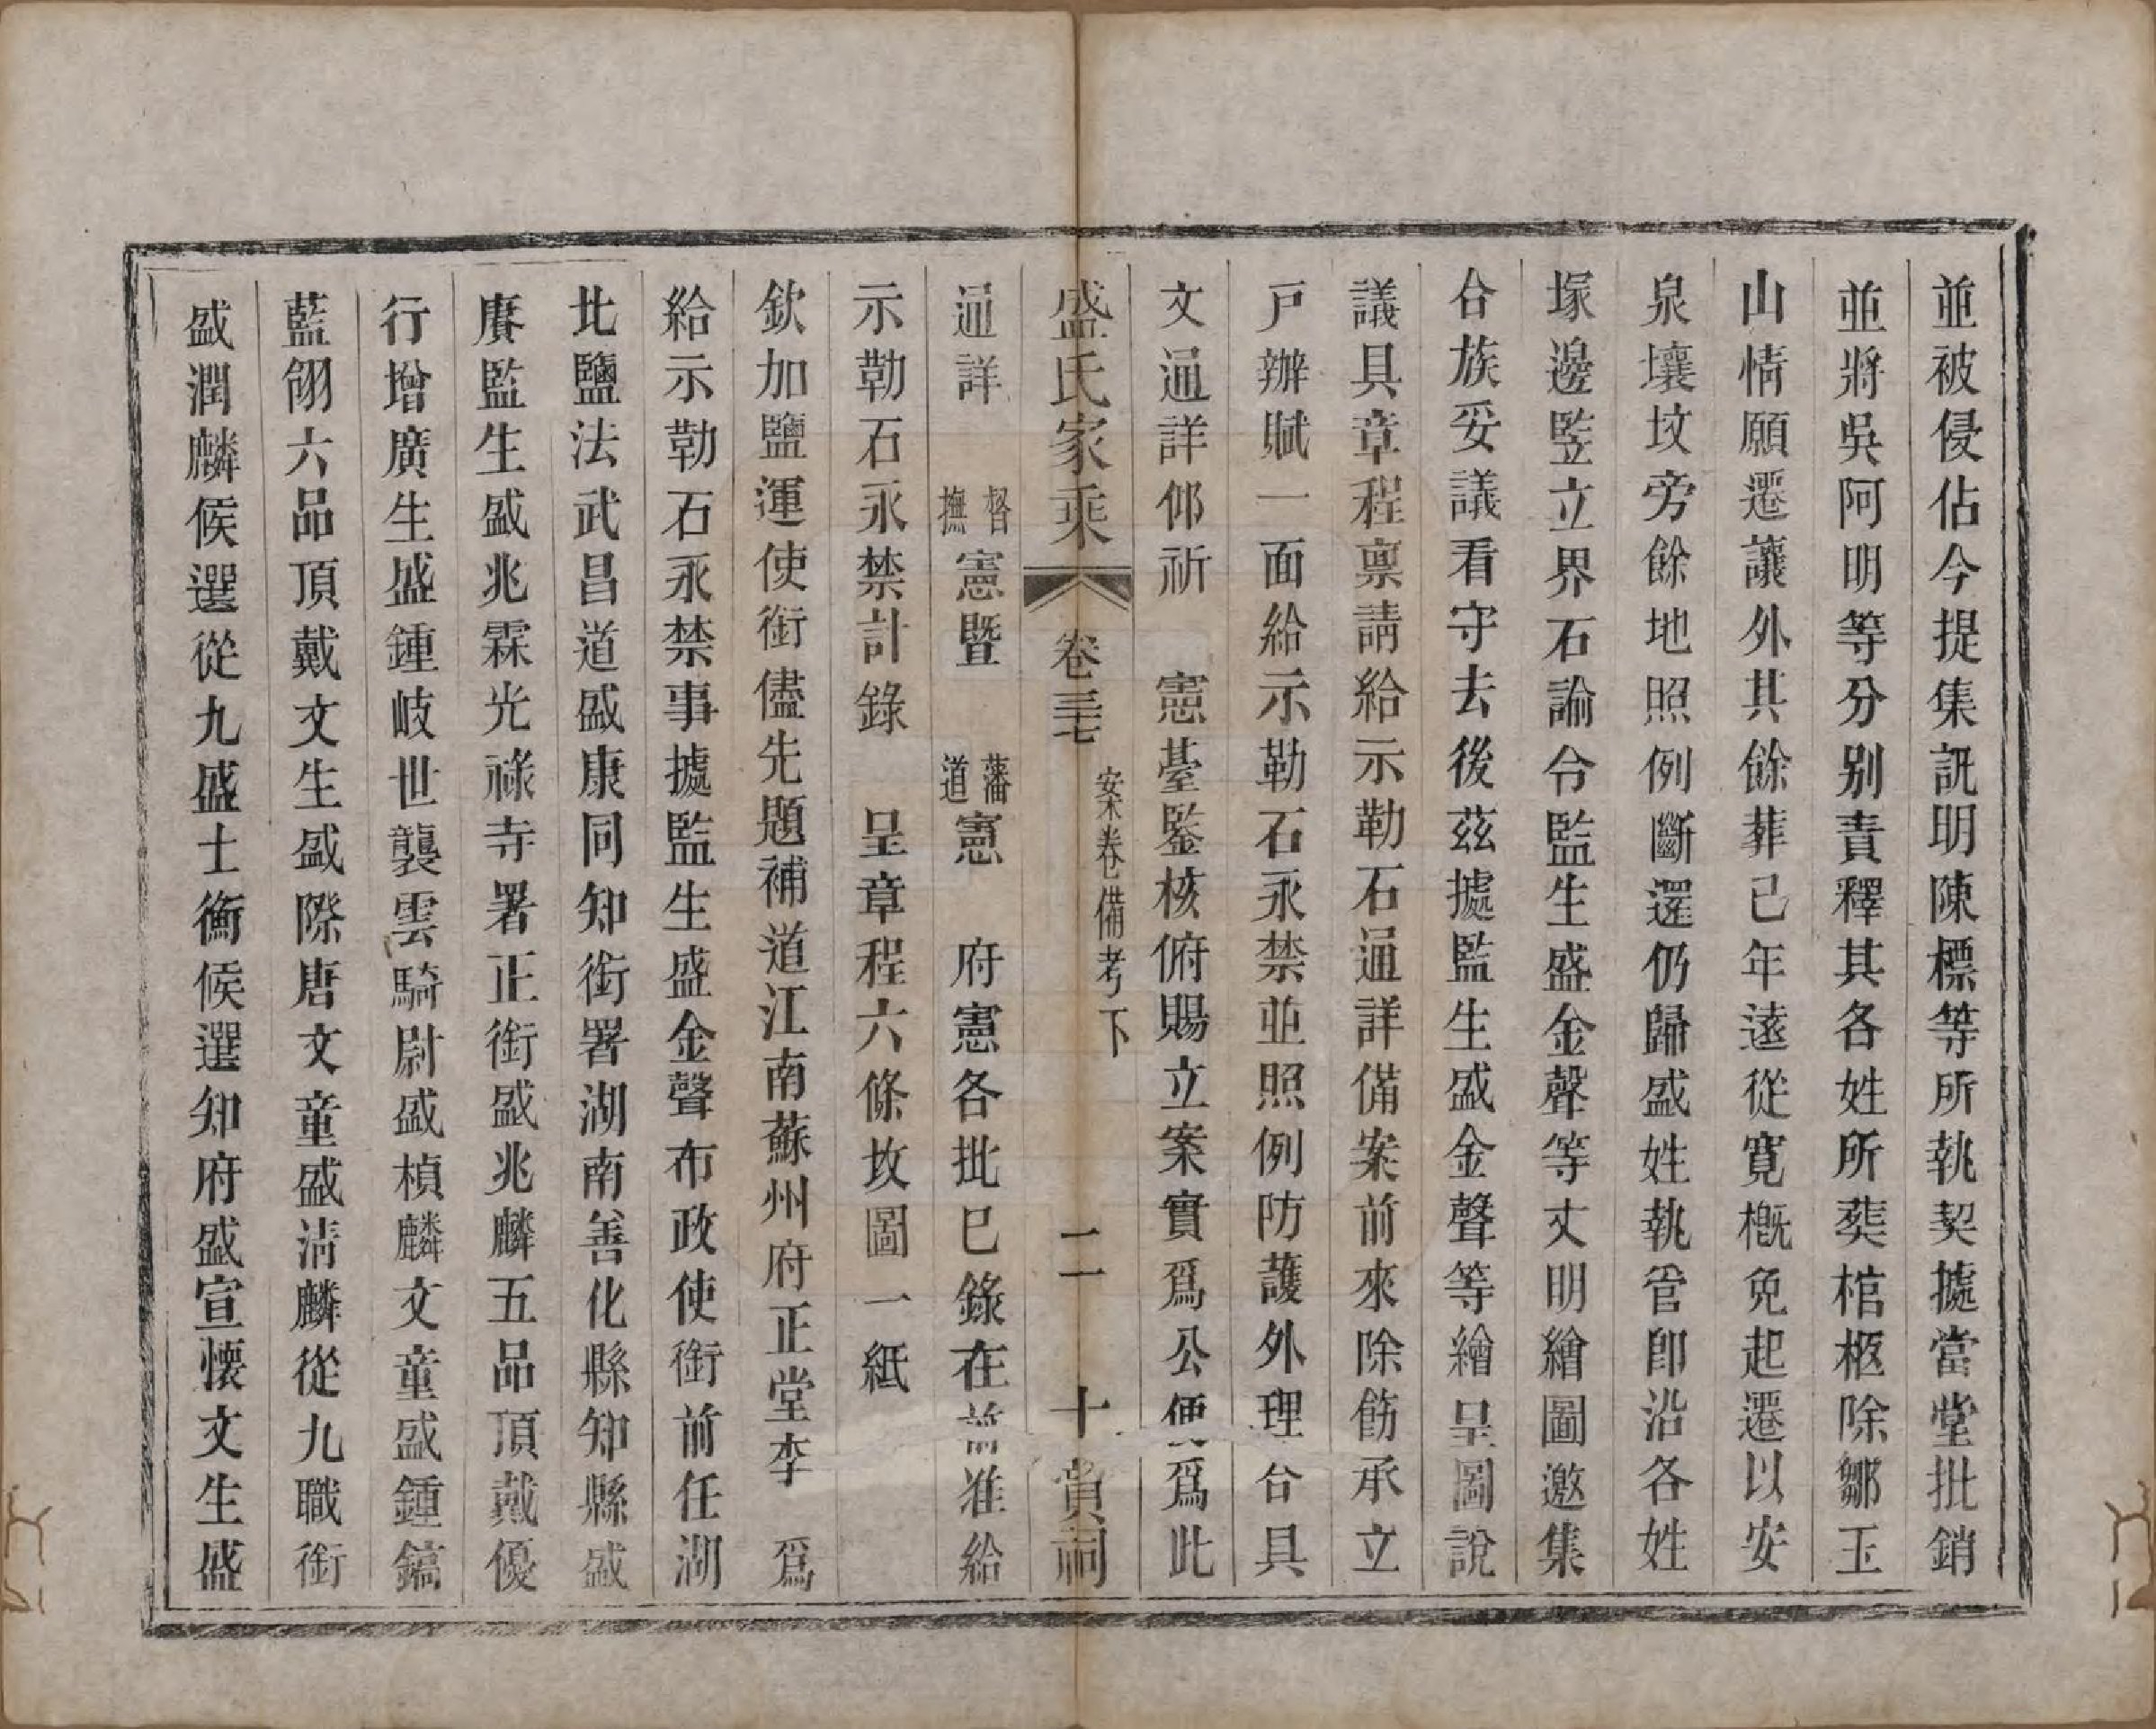 並被侵佔今提集訊明陳標等所執契據當堂批銷
並將吳阿明等分别責釋其各姓所葬棺柩除鄒玉
山情願遷讓外其餘葬已年遠從寬槪免起遷以安
泉壤坟旁餘地照例斷還仍歸盛姓執官卽沿各姓
塚邊監立界石諭令監生盛金聲等丈明繪圖邀集
合族妥議看守去後茲據監生盛金聲等繪呈圖說
議具章程禀請給示勒石通詳備案前來除飭承立
戸辦賦一面給示勒石永禁並照例防護外理合具
文通詳仰祈　憲臺鑒核俯賜立案實爲公便爲此
盛氏家乘　卷三十七　案卷備考下　二一　十賁祠
通詳　督撫憲暨　藩道憲　府憲各批已錄在前准給
示勒石永禁計錄　呈章程六條坟圖一紙
欽加鹽運使銜儘先題補道江南蘇州府正堂李　爲
給示勒石永禁事據監生盛金聲布政使銜前任湖
北鹽法武昌道盛康同知銜署湖南善化縣知縣盛
賡監生盛兆霖光祿寺署正銜盛兆麟五品頂戴優
行增廣生盛鍾岐世襲雲騎尉盛楨麟文童盛鍾鎬
藍翎六品頂戴文生盛際唐文童盛淸麟從九職銜
盛潤麟候選從九盛士衡候選知府盛宣懷文生盛